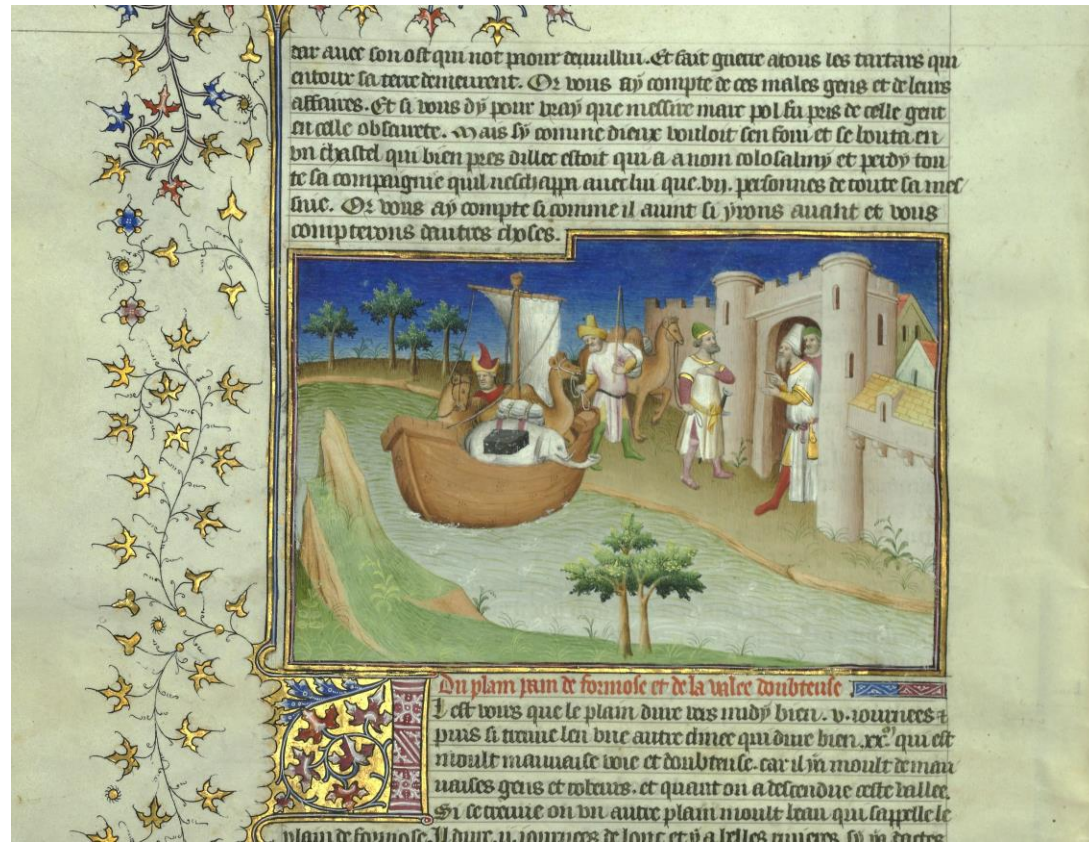 dar auec son ost qui not pour deuullin. Et fait guerre atous les tartars qui
entour sa terre demeurent. Or vous ay compte de ces males gens et de leurs
affaires. Et si vous dy pour vray que messire marc pol fu pris de celle gent
en celle obscurete. Mais sy comme dieux vouloit sen foui et se bouta en
vn chastel qui bien pres dillec estoit qui a a nom colosalmy et perdy tou
te sa compaignie quil neschappa auec lui que .vij. personnes de toute sa mes
snie. Or vous ay compte si comme il auint si yrons auant et vous
compterons dautres choses.
Du plain prin de formose et de la valee doubteuse
Il est vous que le plain dure vers midy bien .v. iournees et
puis si treuue len vne autre clinee qui dure bien .xx. qui est
moult mauuaise voie et doubteuse. car il ya moult de mau
uaises gens et robeurs. et quant on a descendue ceste vallee.
Si se treuue on vn autre plain moult beau qui sappelle le
plain de formose. Il dure .ij. iournees de lonc et y a belles riuieres. sy ya dactes